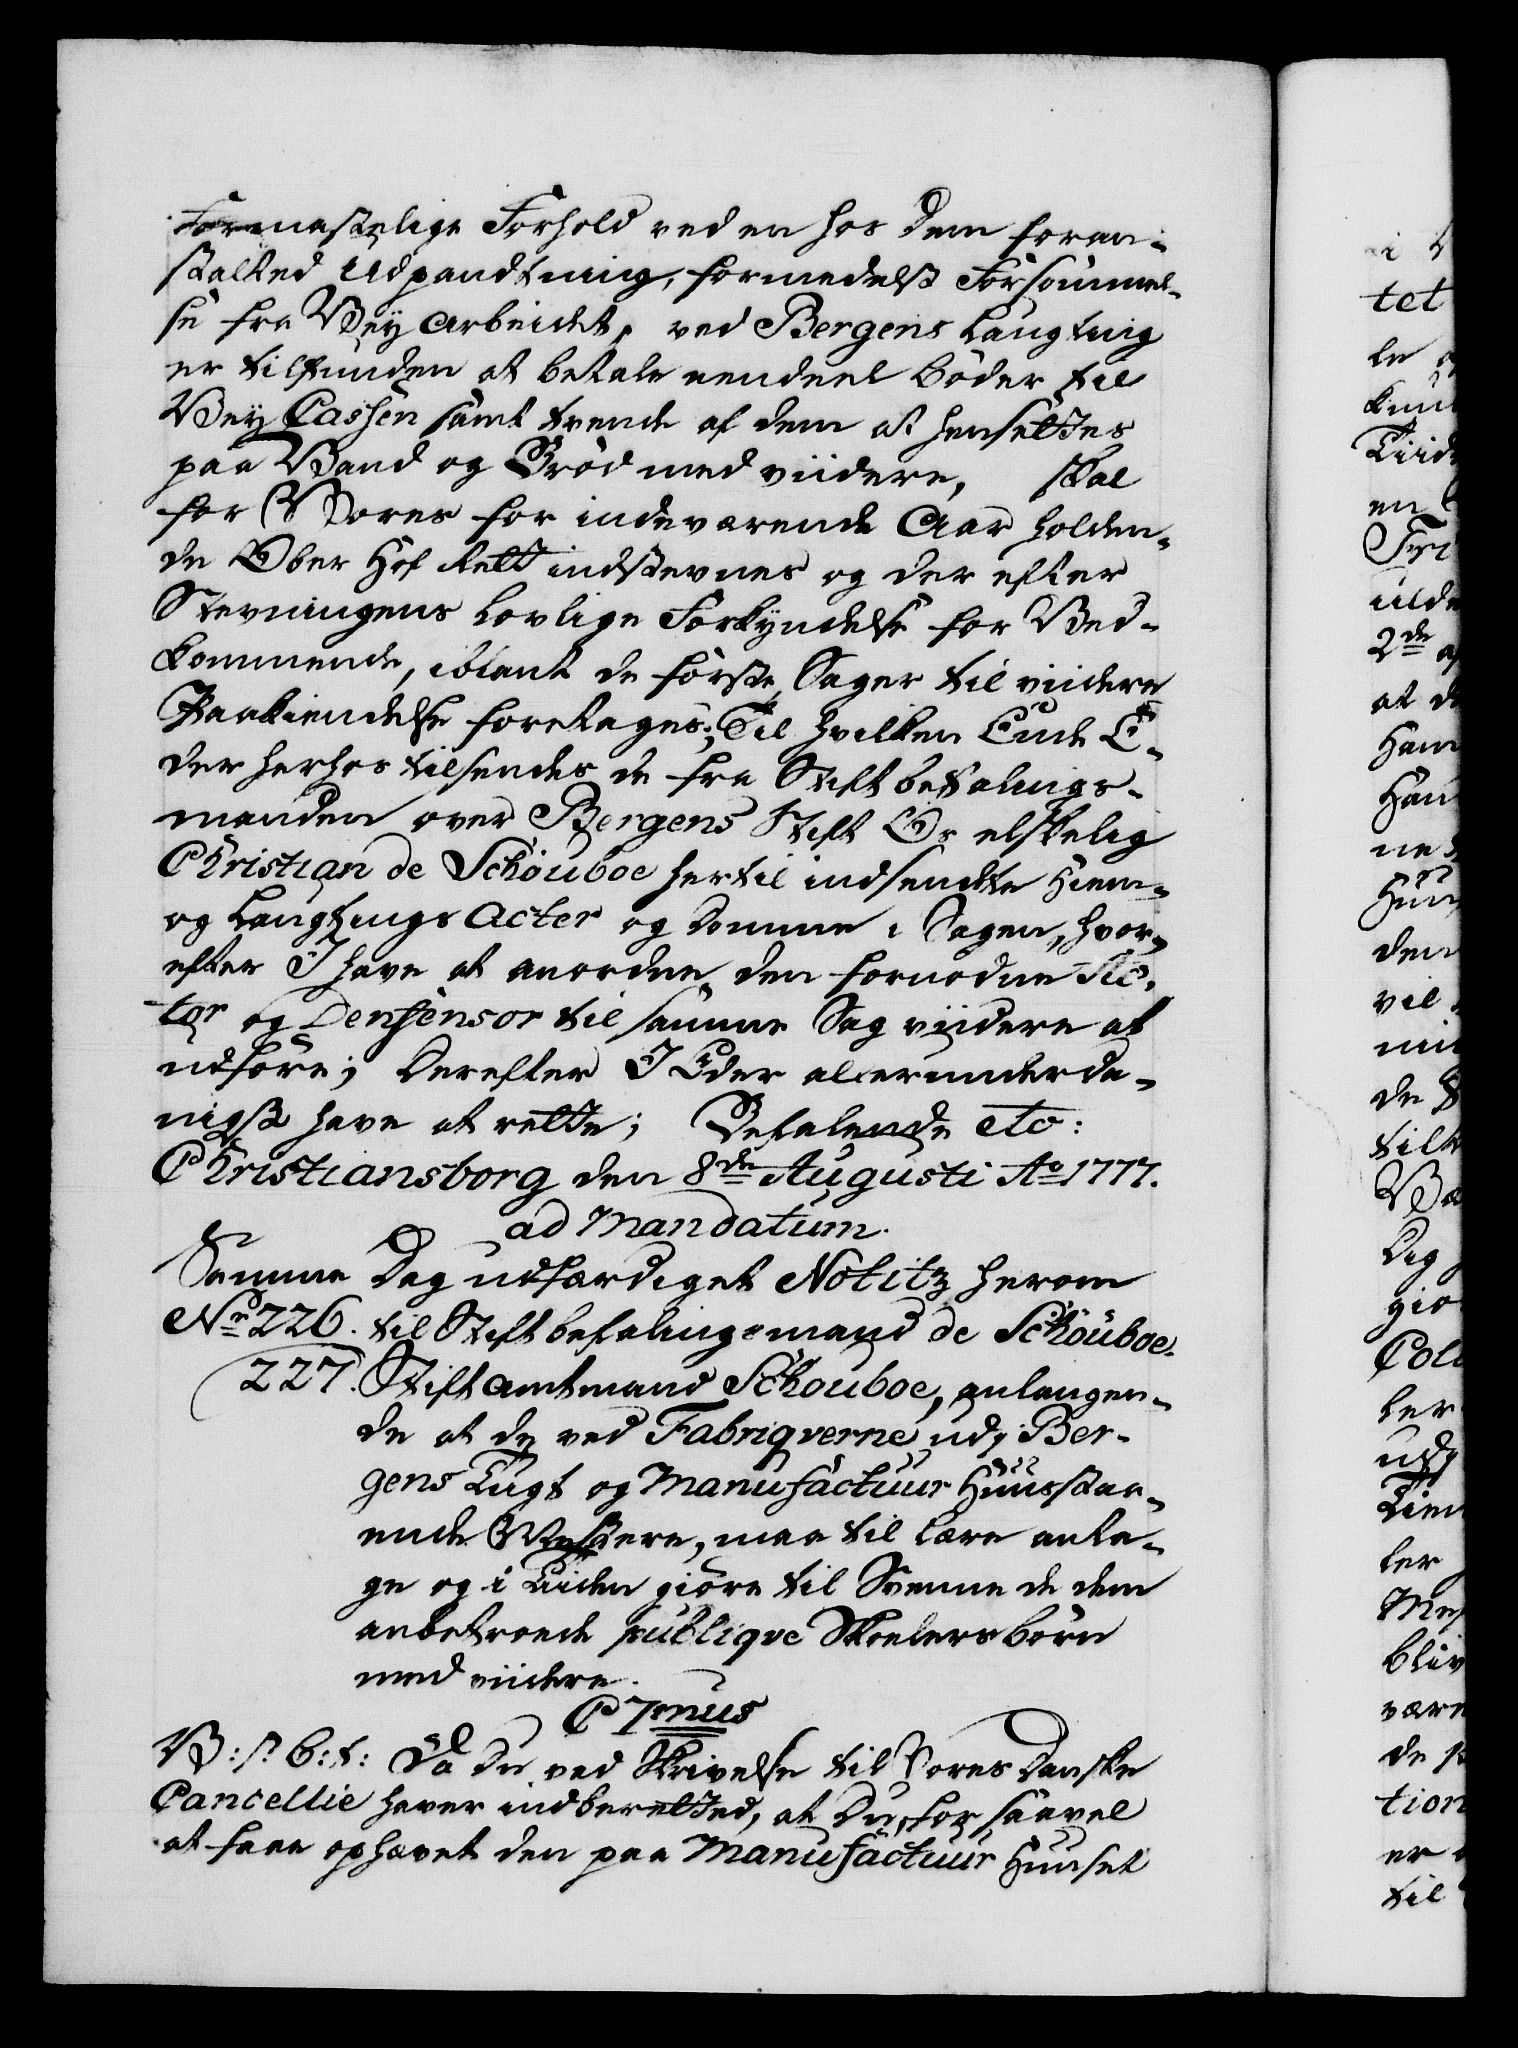 Formastelige Forhold ved en hos dem foran-
stalted Udpandtning, formedelst Forsømmel-
se fra Vey Arbeidet, ved Bergens Laugting
er tilfunden at betale eendeel Bøder til
Vey Cassen samt trende af dem at hensettes
paa Vand og Brød med viidere, skal
for Vores for indeværende Aar holden-
de Ober Hof Rett indstevnes og der efter
Stevningens lovlige Forkyndelse for Ved-
kommende, iblant de første Sager til viidere
Paakiendelse foretages; Til hvilken Ende E-
der herhos tilsendes de fra Stiftbefalings-
manden over Bergens Stift Os elskelig
Christian de Schouboe hertil indsendte Hiem-
og Laugtings Acter og Domme i Sagen, hvor-
efter I have at anordne den fornødne Ac-
tor og Denfensor til samme Sag viidere at
udføre; Derefter I Eder allerunderda-
nigst have at rette; Befalende etc:
Christiansborg den 8de Augusti Ao 1777.
ad Mandatum.
Samme Dag udfærdiget Notitz herom
No 226. til Stiftbefalingsmand de Schouboe.
227. Stiftamtmand Schouboe, anlangen-
de at de ved Fabriqverne udj Ber-
gens Tugt og Manufactuur Huus staa-
ende Mestere, maa til Lære anta-
ge og i Tiiden giøre til Svenne de dem
anbetroede publique Skoelers børn
med viidere.
C 7mus
V: s. b: t: Da Du ved Skrivelse til Vores Danske
Cancellie haver indberetted, at Du, for saavel
at faae ophævet den paa Manufactuur Huuset